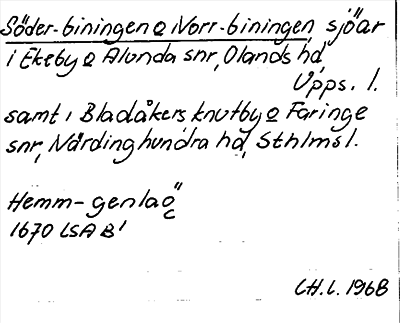 Söder-biningen o Norr-biningen, sjöar
i Ekeby o Alunda snr, Olands hd,
Upps. l.
samt i Bladåkers knutby o Faringe
snr, Närdinghundra hd, Sthlms l.
Hemm-genlag
1670 LSA B'
CH.L. 1968